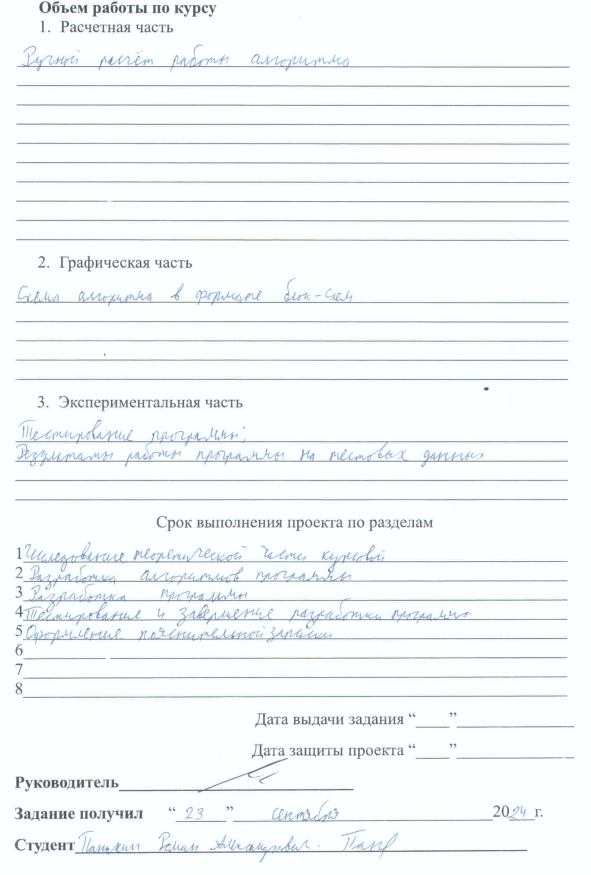 Объем работы по курсу
1. Расчетная часть
Ручной расчёт работы алгоритма
2. Графическая часть
Схема алгоритма в формате блок-схем
3. Экспериментальная часть
Тестирование программы;
Результаты работы программы на тестовых данных
Срок выполнения проекта по разделам
1 Исследование теоретической части курсовой
2 Разработка алгоритмов программы
3 Разработка программы
4 Тестирование и завершение разработки программы
5 Оформление пояснительной записки
6
7
8
Дата выдачи задания “____”
Дата защиты проекта “____”
Руководитель
Задание получил “ 23 ” сентября 2024 г.
Студент Роман Александрович.